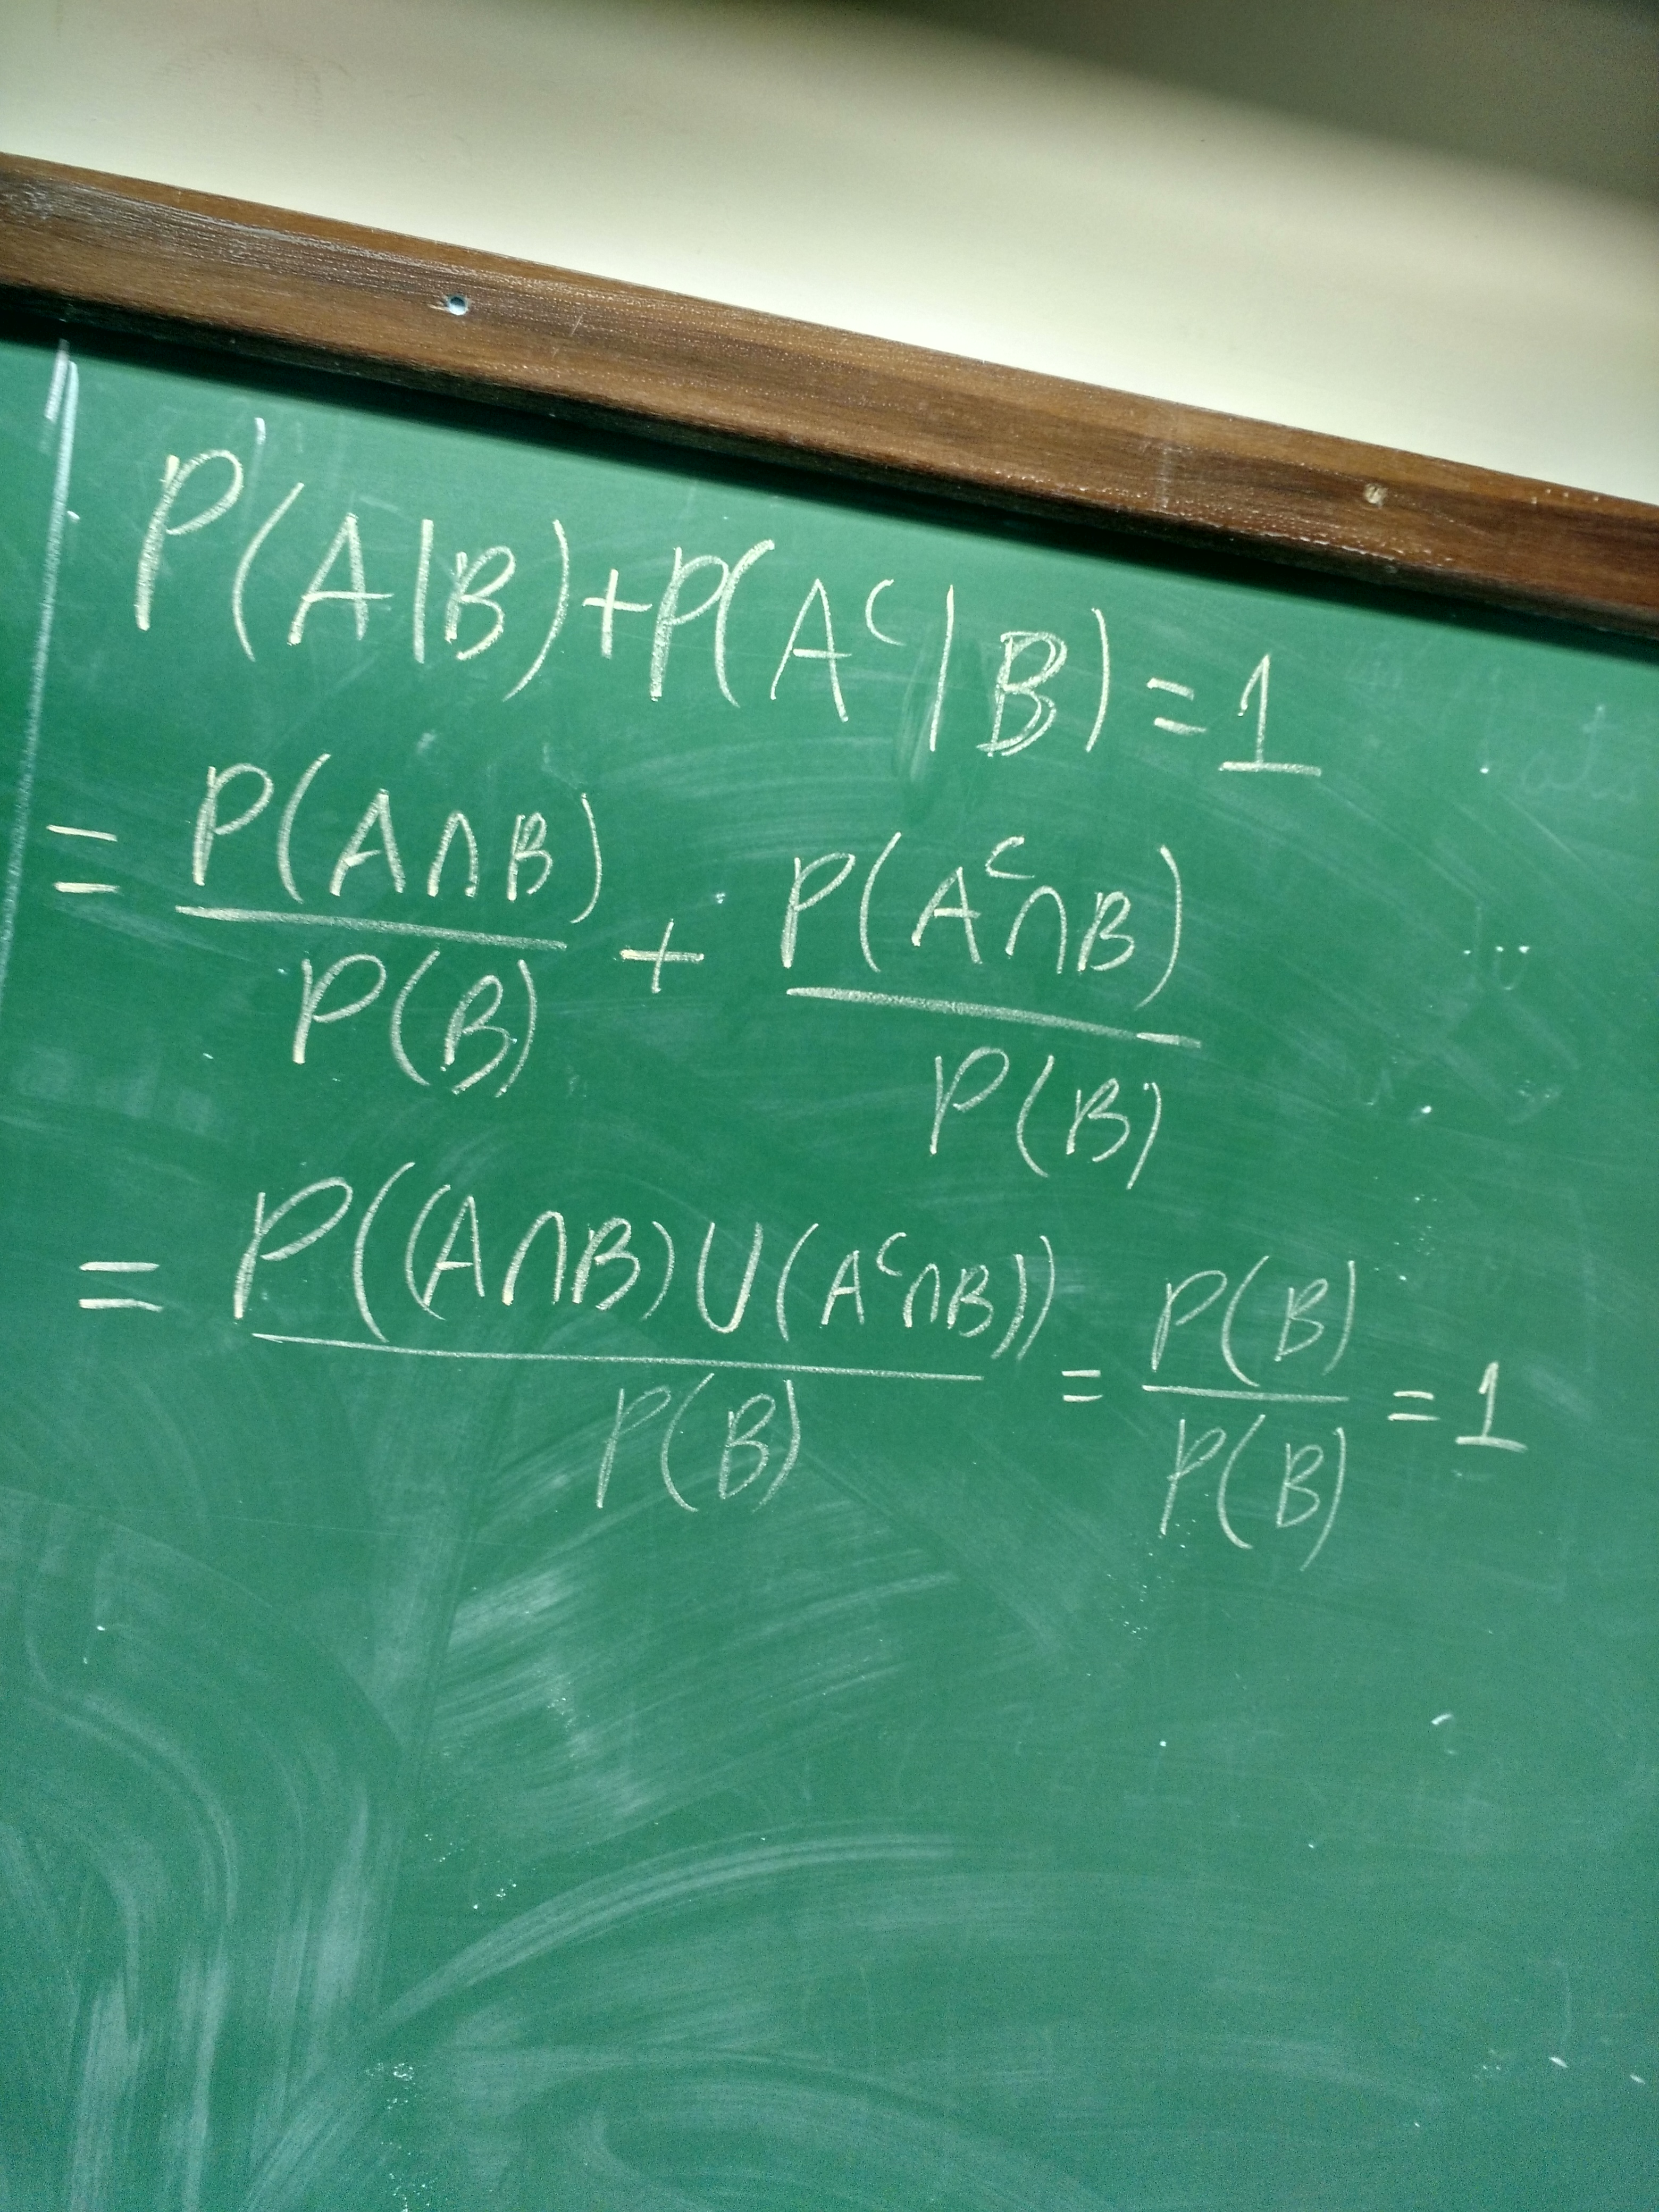 P(A|B)+P(Aᶜ|B)=1
= P(A∩B)/P(B) + P(Aᶜ∩B)/P(B)
= P((A∩B)∪(Aᶜ∩B))/P(B) = P(B)/P(B) = 1